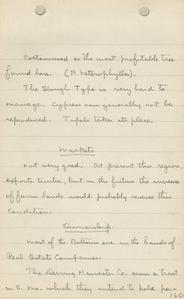 Cottonwood is the most profitable tree
found here. (P. heterophylla).
The Slough Type is very hard to
manage. Cypress can generally not be
reproduced. Tupelo takes its place.
Markets
Not very good. At present this region
exports timber, but in the future the increase
of farm lands would probably reverse this
condition.
Ownership.
Most of the Bottoms are in the hands of
Real Estate Companies.
The Deering Harvester Co. own a tract
in S. Mo. which they intend to hold per-
160